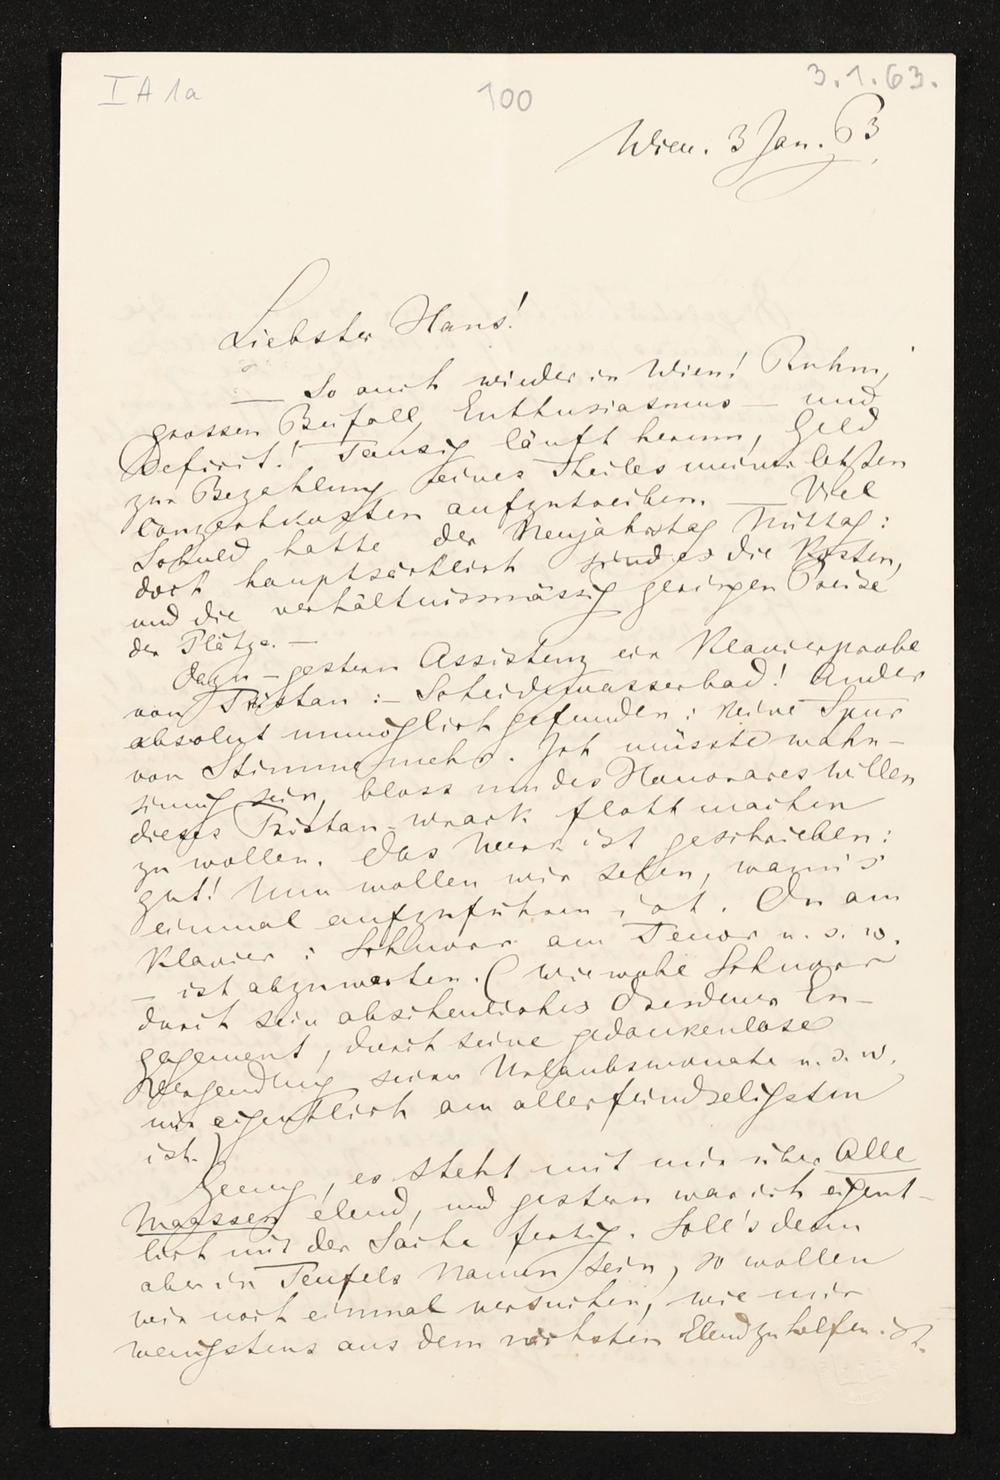 I A 1a
100
3.1.63.
Wien. 3 Jan. 63
Liebster Hans!
— So auch wieder in Wien! Ruhm,
grossen Beifall, Enthusiasmus — und
Deficit! Tausig läuft herum, Geld
zur Bezahlung eines Theiles meiner letzten
Conzertkosten aufzutreiben. — Viel
Schuld hatte der Neujahrstag Mittag:
doch hauptsächlich sind es die Kosten,
und die verhältnismässig geringen Preise
der Plätze. —
Dazu — gestern Assistenz ein Klavierprobe
von Tristan: — Scheidewasserbad! Ander
absolut unmöglich gefunden: keine Spur
von Stimme mehr. Ich müsste wahn-
sinnig sein, bloss um des Honorares willen
dieses Tristan-wrack flott machen
zu wollen. Das Werk ist geschrieben:
gut! Nun wollen wir sehen, wann's
einmal aufzuführen ist. Du am
Klavier: Schnorr am Tenor u. s. w.
— ist abzuwarten. (Wiewohl Schnorr
durch sein abscheuliches Dresdener En-
gagement, durch seine gedankenlose
Vergendung seiner Urlaubsmonate u. s. w.
mir eigentlich am allerfeindseligsten
ist.)
Genug, es steht mit mir über Alle
Maassen elend, und gestern war ich eigent-
lich mit der Sache fertig. Soll's denn
aber in Teufels Namen sein, so wollen
wir noch einmal versuchen, wie mir
wenigstens aus dem nächsten Elend zu helfen ist.